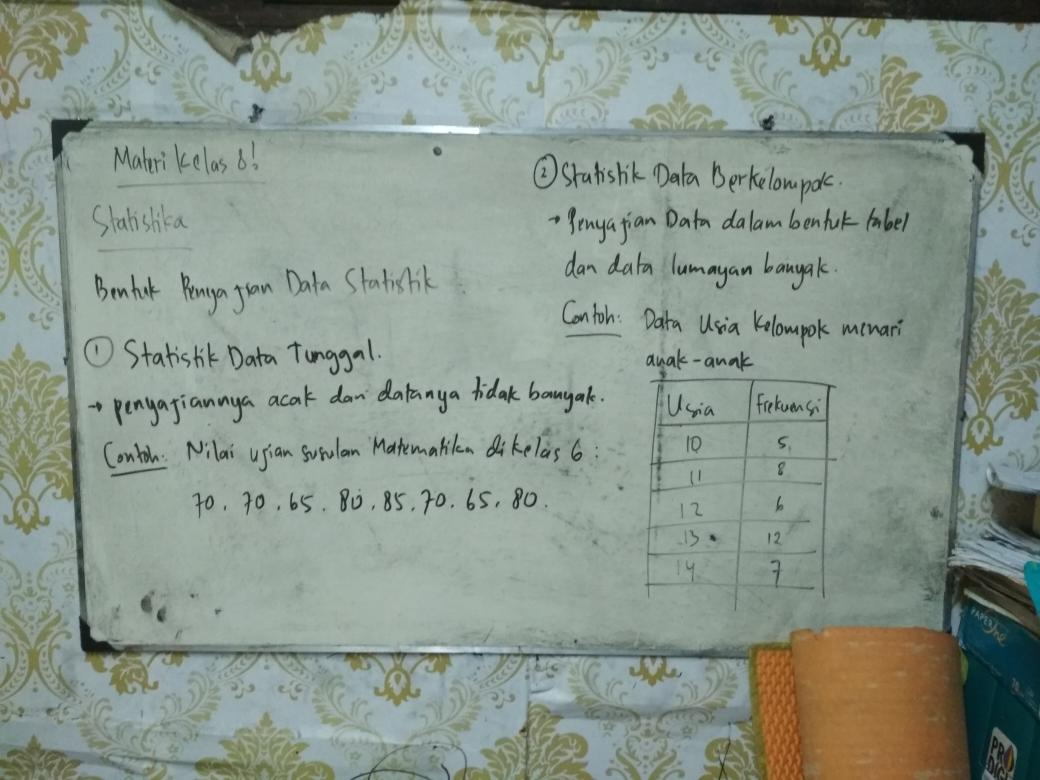 Materi Kelas 8!
Statistika
Bentuk Penyajian Data Statistik
① Statistik Data Tunggal.
→ penyajiannya acak dan datanya tidak banyak.
Contoh: Nilai ujian susulan Matematika di kelas 6 :
70, 70, 65, 80, 85, 70, 65, 80.
② Statistik Data Berkelompok.
→ Penyajian Data dalam bentuk tabel
dan data lumayan banyak.
Contoh: Data Usia Kelompok menari
anak-anak
Usia Frekuensi
10 5
11 8
12 6
13 12
14 7
PAPERline
PRO